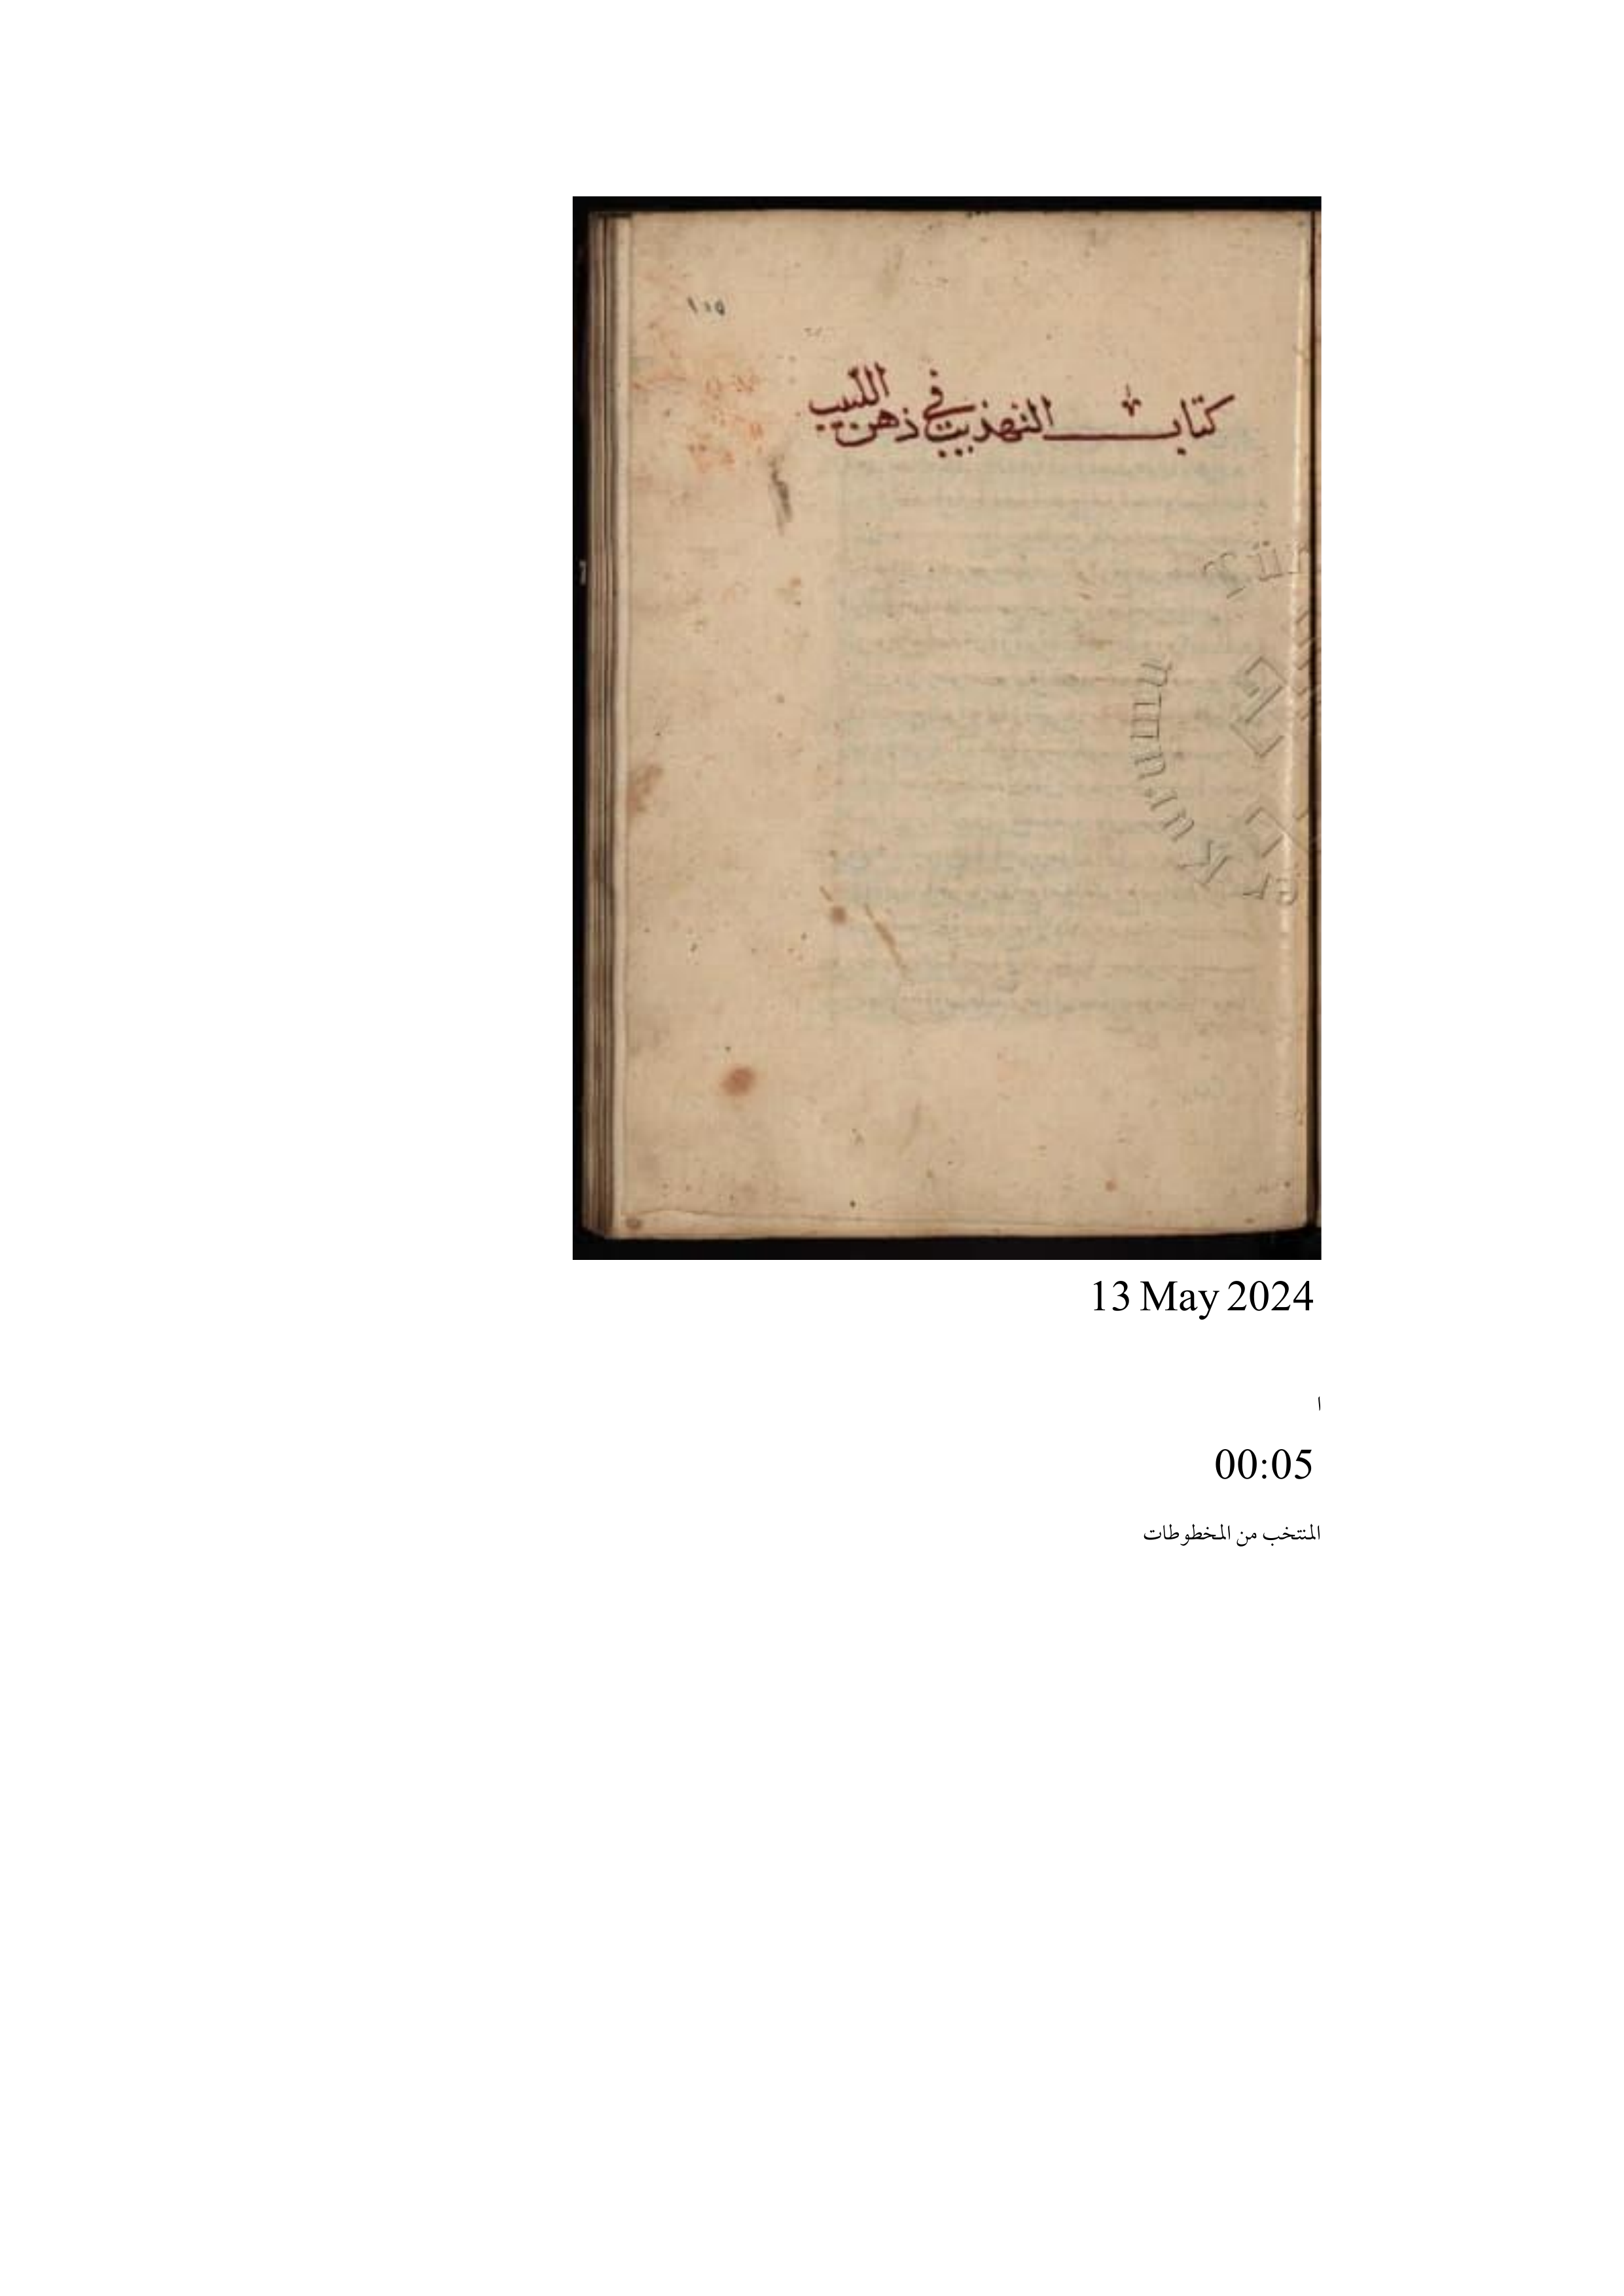 ١٠٥
كتاب التهذيب في ذهن اللبيب
13 May 2024
ا
00:05
المنتخب من المخطوطات